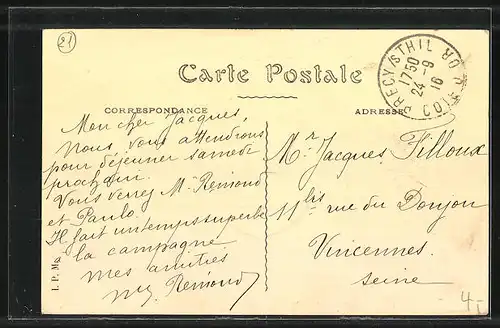 21
Carte Postale
CORRESPONDANCE
ADRESSE
PRECY/S THIL
CÔTE D'OR
1750
24-9
16
Mon cher Jacques,
Nous vous attendrons
pour déjeuner samedi
prochain.
Vous verrez Mr Remond
et Paulo.
Il fait un temps superbe
la campagne
mes amitiés
Remond
Mr Jacques Filloux
11bis rue du Donjon
Vincennes
Seine
I. P. M.
4.-